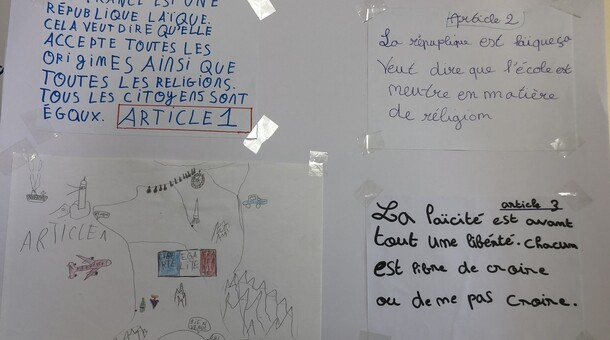 FRANCE EST UNE
RÉPUBLIQUE LAÏQUE.
CELA VEUT DIRE QU'ELLE
ACCEPTE TOUTES LES
ORIGINES AINSI QUE
TOUTES LES RELIGIONS.
TOUS LES CITOYENS SONT
ÉGAUX. ARTICLE 1
Article 2
La république est laïque ça
Veut dire que l'école est
neutre en matière
de réligion
ARTICLE 1
EGA
LITÉ
article 3
La laïcité est avant
tout une libérté. Chacun
est libre de croire
ou de ne pas croire.